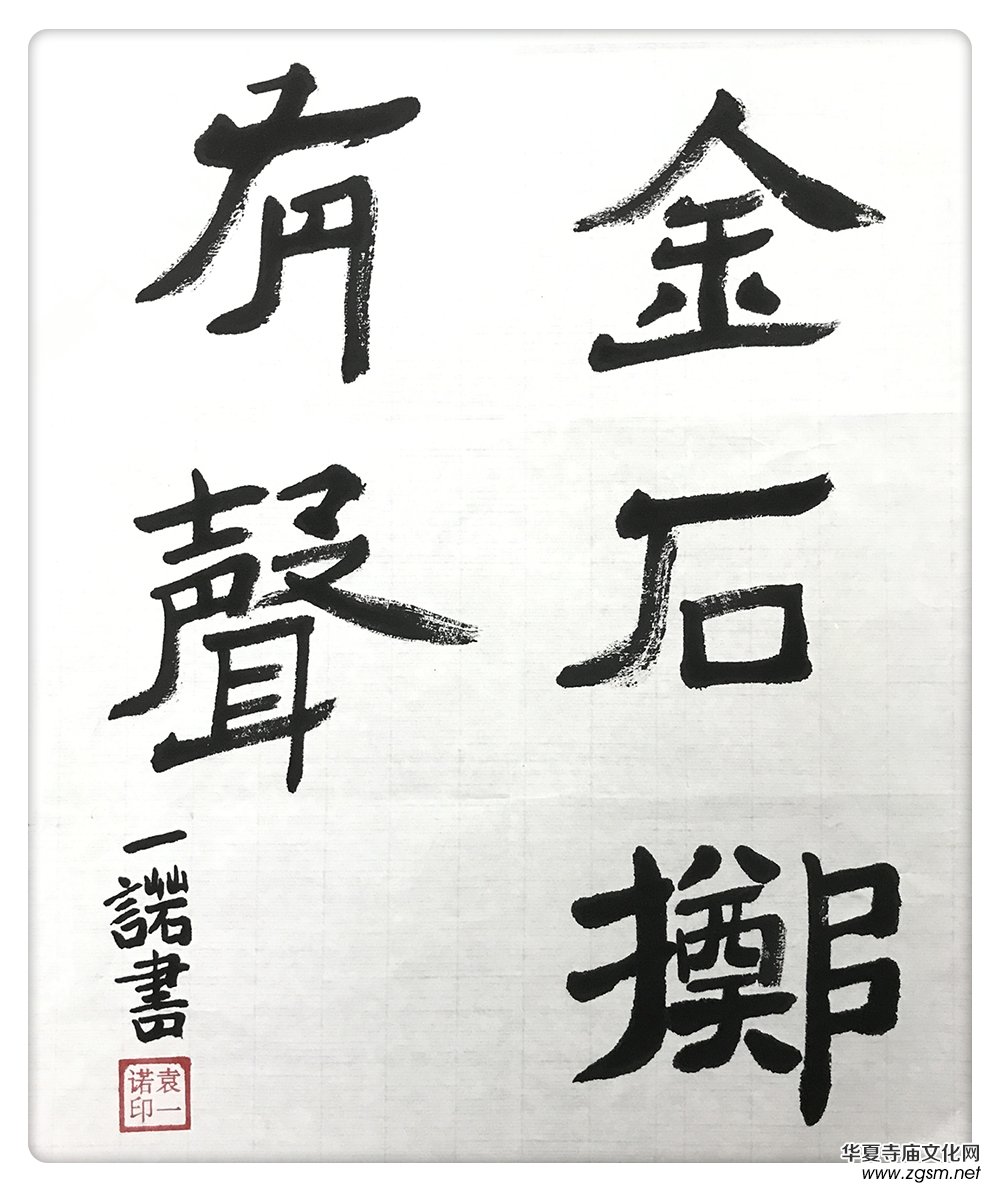 金石擲
有聲
一諾書
袁一
诺印
华夏寺庙文化网
www.zgsm.net